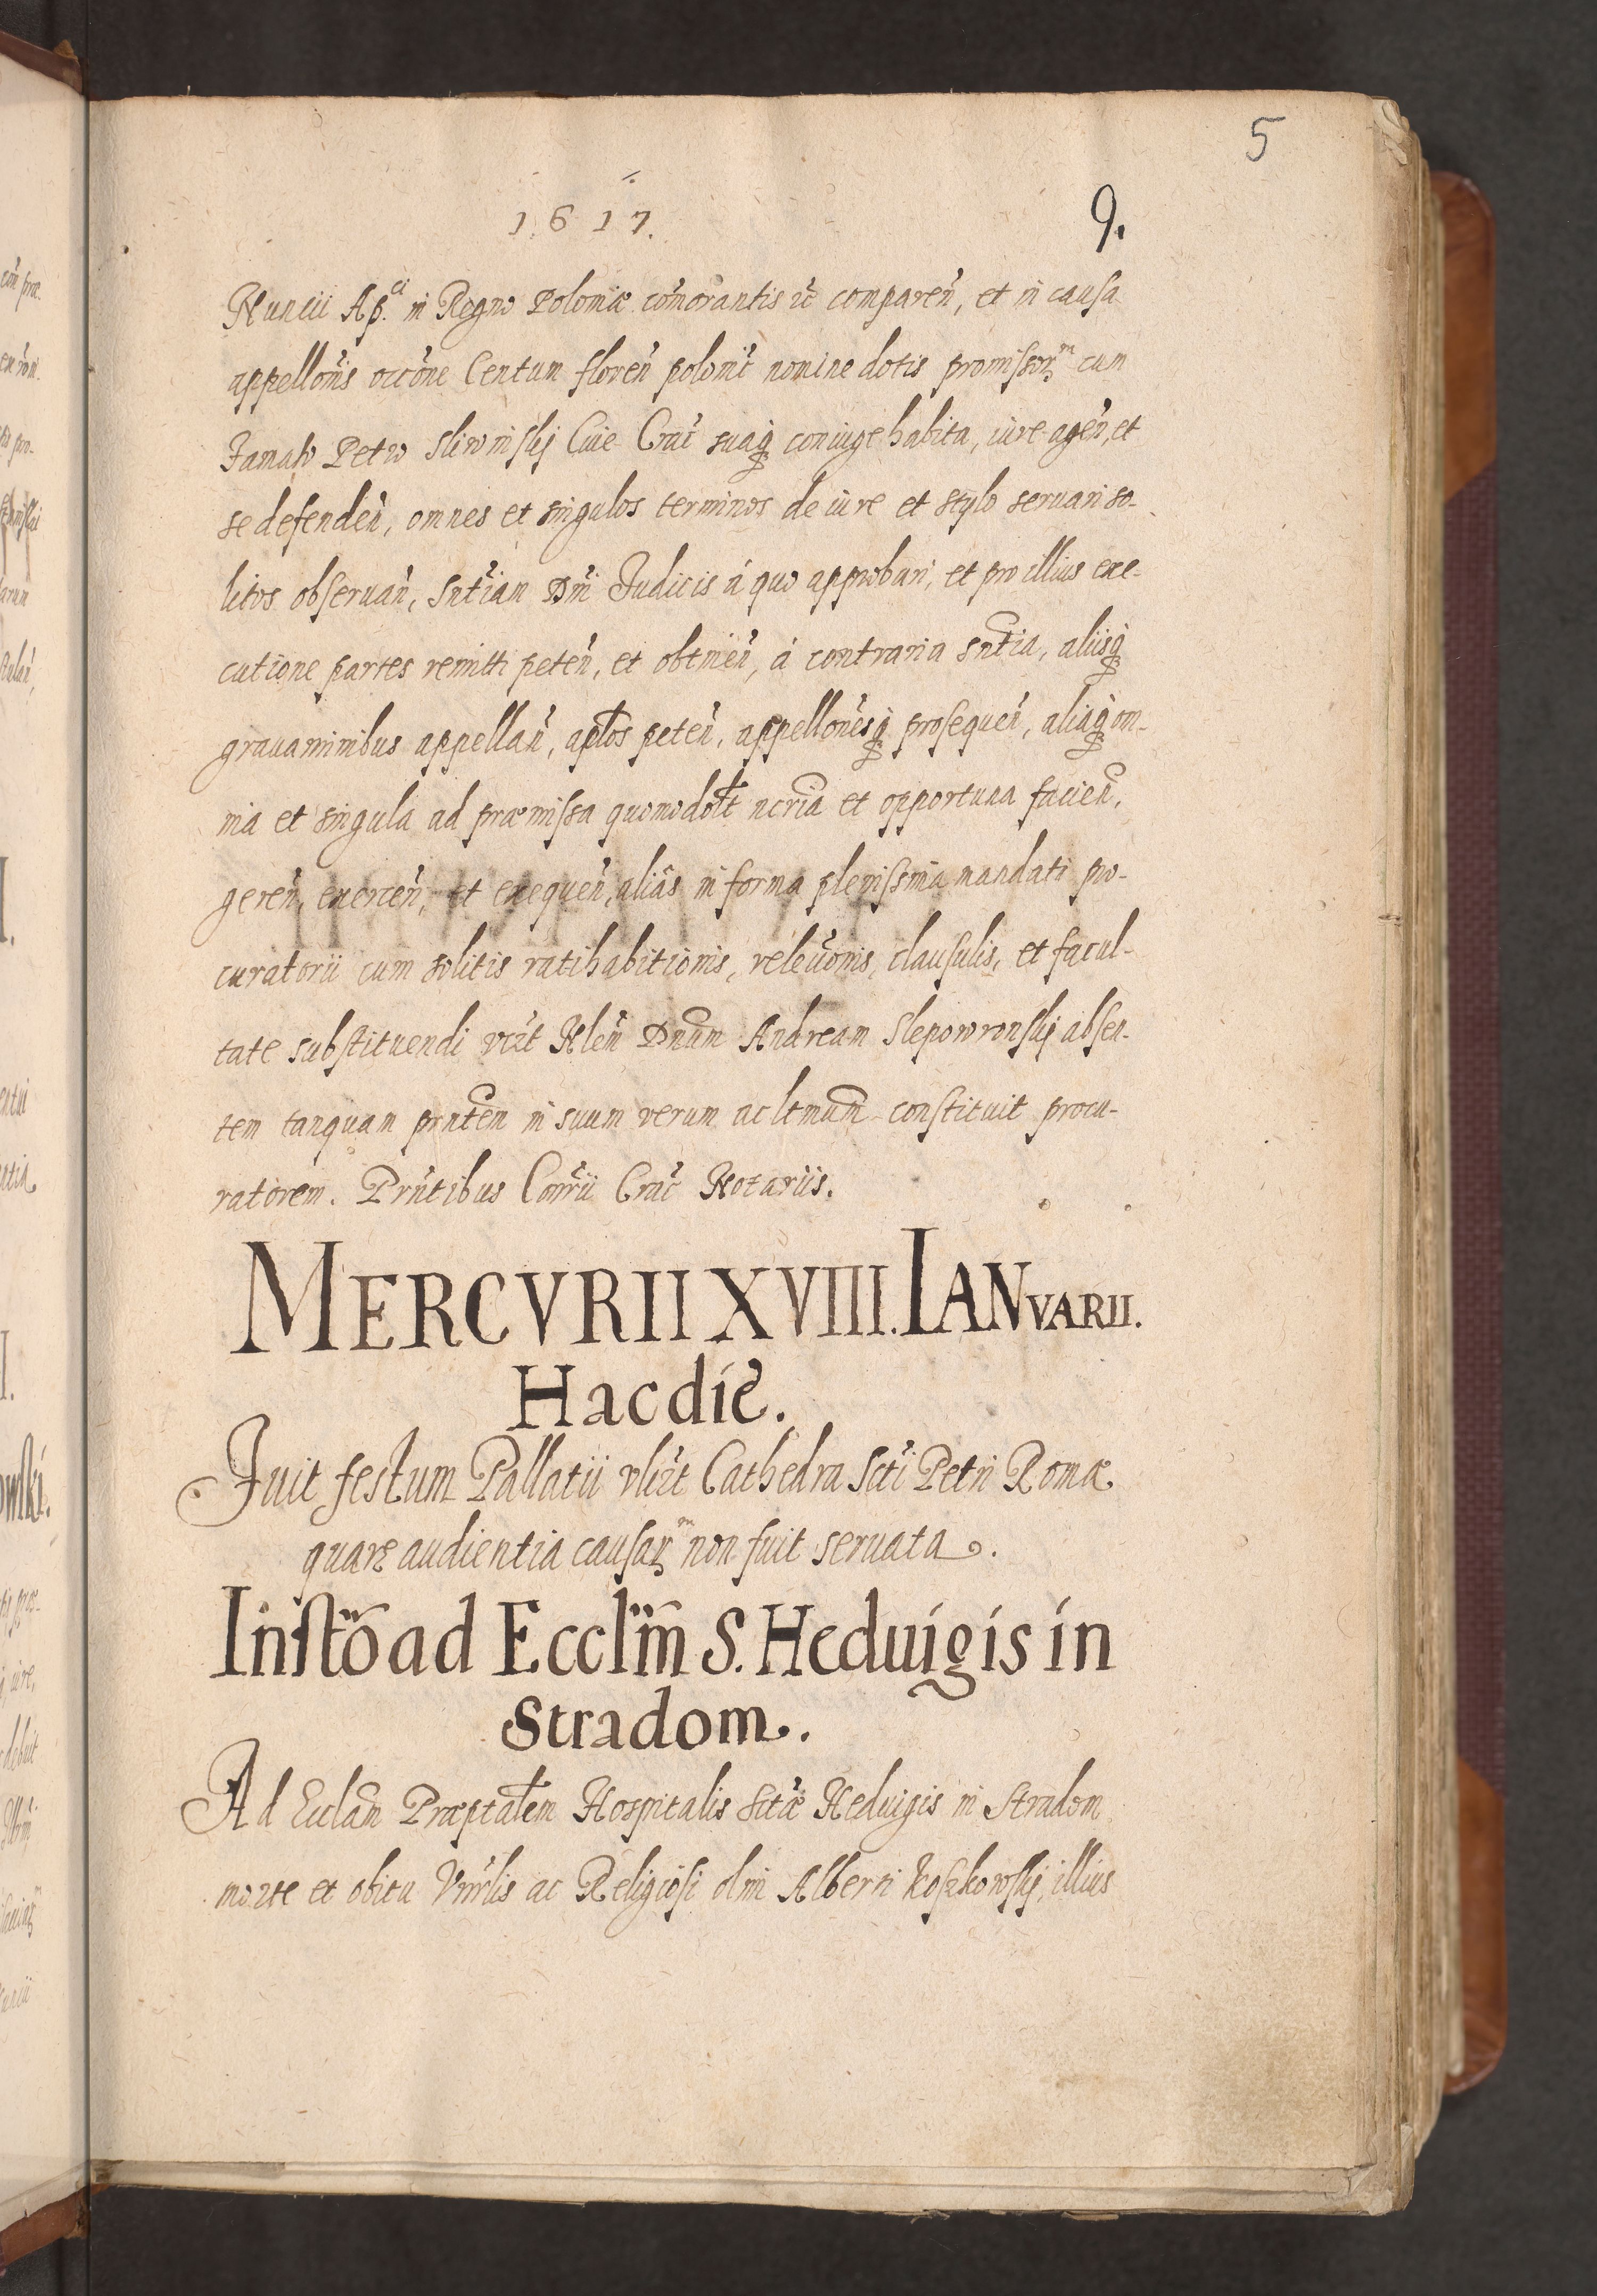 5
1617.
9.
Nuncii Ap.ci in Regno Poloniæ com̃orantis ec̃ comparen̄, et in causa
appellon̄is occ̄one Centum floren̄ polonic̄ nomine dotis promissoꝝm cum
Famato Petro Sliwinskj Ciue Crac̄ suaqȝ coniuge habita, iure agen̄, et
se defenden̄, omnes et singulos terminos de iure et stylo seruari so-
litos obseruan̄, sn̄tiam Dn̄i Judicis á quo approbari, et pro illius exe-
cutione partes remitti peten̄, et obtinen̄, á contraria sn̄tia, aliisqȝ
grauaminibus appellan̄, apl̄os peten̄, appellon̄esqȝ prosequen̄, aliaqȝ om-
nia et singula ad præmissa quomodol̄t nc̄ria et opportuna facien̄,
geren̄, exercen̄, et exequen̄, aliâs in forma plenissima mandati pro-
curatorii cum solitis ratihabitionis, releūonis, clausulis, et facul-
tate substituendi vīzt N̄len̄ Dn̄um Andream Slepowronskj absen-
tem tanquam prn̄tem in suum verum ac ltm̄um constituit procu-
ratorem. Prn̄tibus Con̄rii Crac̄ Notariis.
MERCVRII XVIII. IANVARII.
Hac die.
Fuit festum Pallatii vlīzt Cathedra Scti Petri Romæ
quare audientia causaꝝm non fuit seruata.
Inst̄o ad Eccl̄m S. Heduigis in
Stradom.
Ad Eccl̄am Præpta̅lem Hospitalis Sctæ Heduigis in Stradom
morte et obitu Vn̄rlis ac Religiosi olim Alberti Koszkowskj, illius